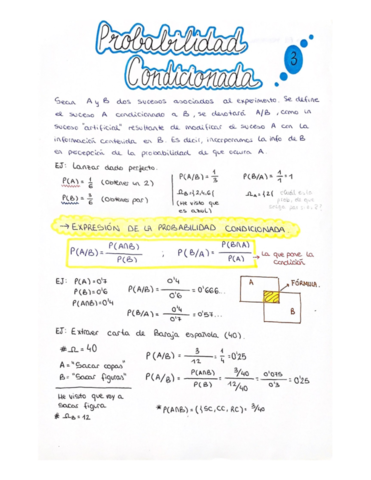 Probabilidad
Condicionada
3
Sean A y B dos sucesos asociados al experimento. Se define
el suceso A condicionado a B, se denotará A/B, como un
suceso "artificial" resultante de modificar el suceso A con la
información contenida en B. Es decir, incorporamos la info de B
en percepción de la probabilidad de que ocurra A.
EJ: Lanzar dado perfecto.
P(A) = 1/6 (Obtener un 2)
P(B) = 3/6 (Obtener par)
P(A/B) = 1/3
Ω_B = {2,4,6}
(He visto que
es azul)
P(B/A) = 1/1 = 1
Ω_A = {2}
→ EXPRESIÓN DE LA PROBABILIDAD CONDICIONADA
P(A/B) = P(A∩B)/P(B) ; P(B/A) = P(B∩A)/P(A) → La que pone la condición
EJ: P(A) = 0'7
P(B) = 0'6
P(A∩B) = 0'4
P(A/B) = 0'4/0'6 = 0'666...
P(B/A) = 0'4/0'7 = 0'57...
A
B
FÓRMULA.
EJ: Extraer carta de Baraja española (40).
# Ω = 40
A = "Sacar copas"
B = "Sacar figuras"
He visto que voy a
sacar figura
# Ω_B = 12
P(A/B) = 3/12 = 1/4 = 0'25
P(A/B) = P(A∩B)/P(B) = 3/40 / 12/40 = 0'075/0'3 = 0'25
*P(A∩B) = ({SC, CC, RC} = 3/40